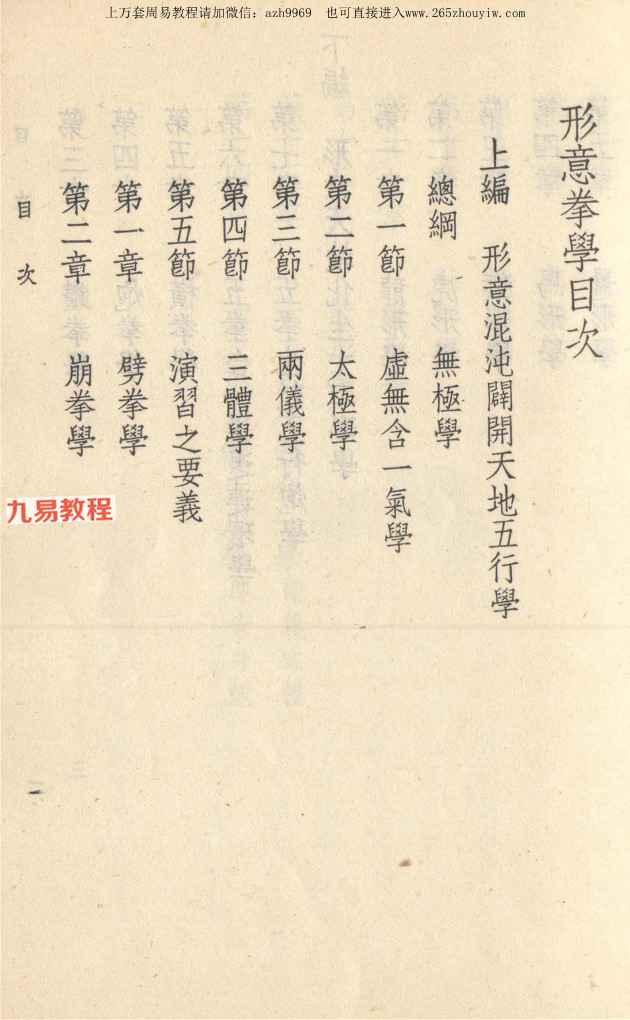 上万套周易教程请加微信：azh9969 也可直接进入www.265zhouyiw.com
形意拳學目次
上編 形意混沌闢開天地五行學
總綱 無極學
第一節 虛無含一氣學
第二節 太極學
第三節 兩儀學
第四節 三體學
第五節 演習之要義
第一章 劈拳學
第二章 崩拳學
目次
九易教程